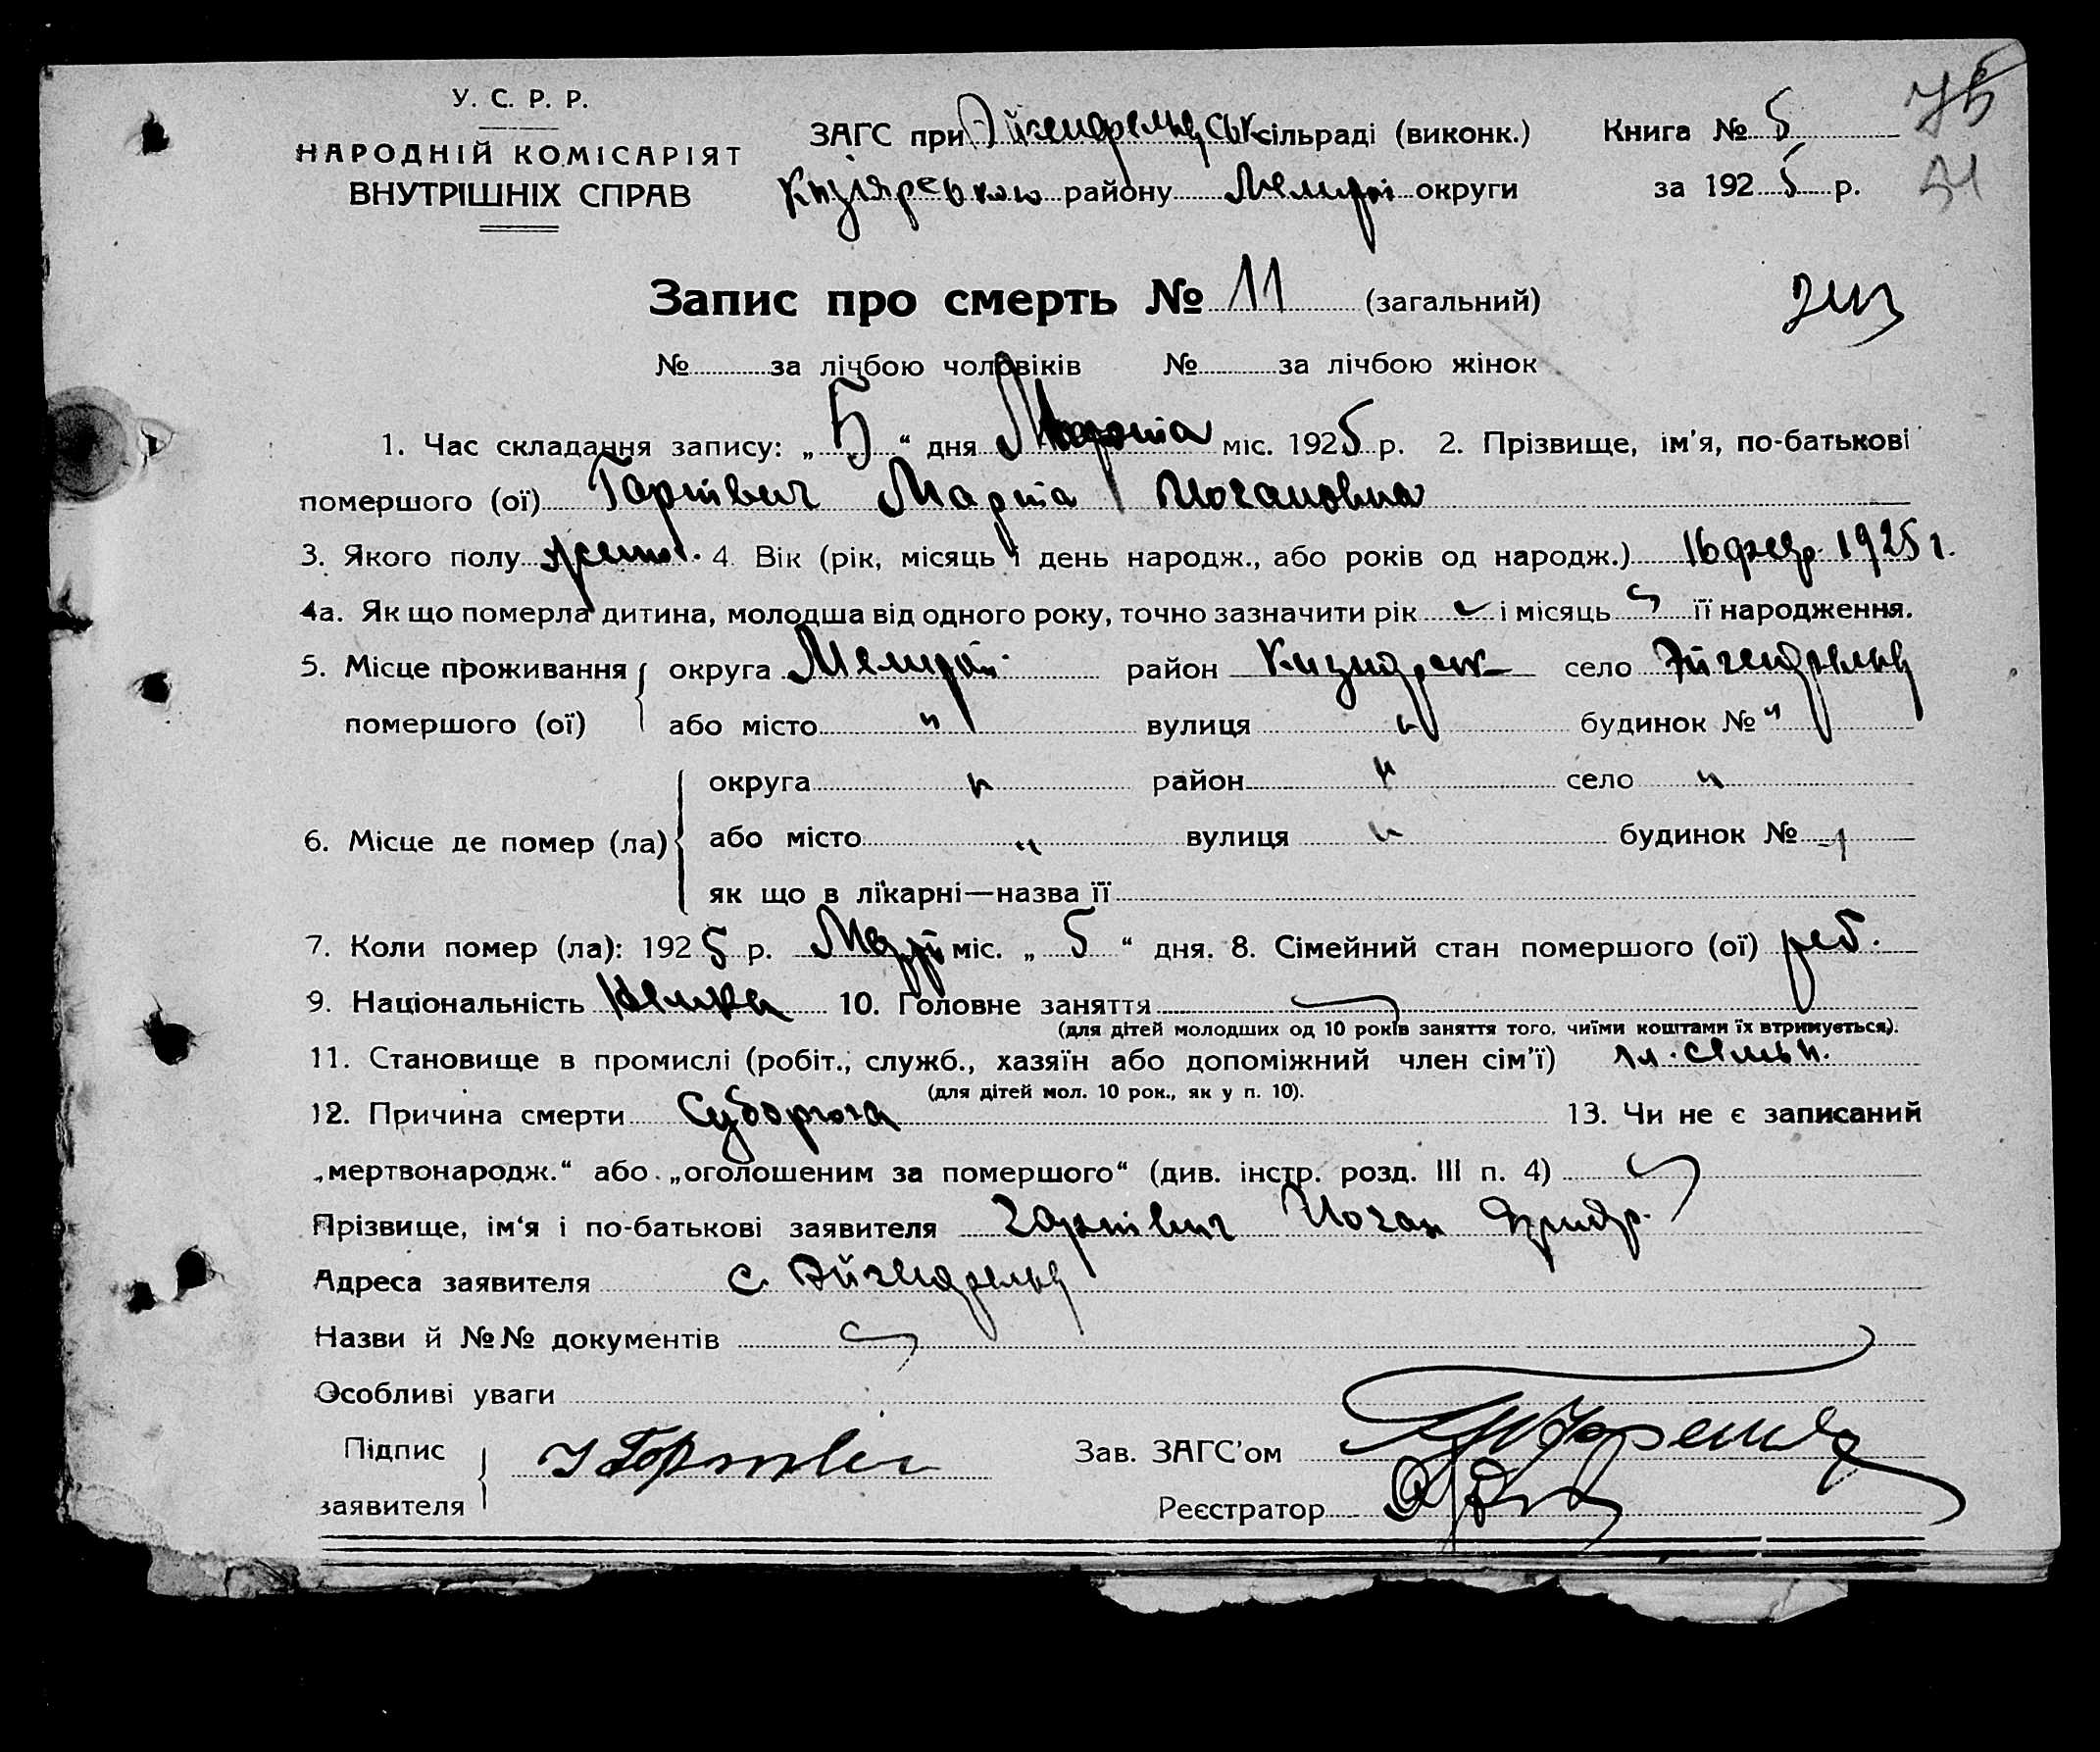 У. С. Р. Р.
НАРОДНІЙ КОМІСАРІЯТ
ВНУТРІШНІХ СПРАВ
ЗАГС при Эйгенфельдськ сільраді (виконк.) Книга № 5
району Меліт округи за 1925 р.
Запис про смерть № 11 (загальний)
№ за лічбою чоловіків № за лічбою жінок
1. Час складання запису: „ 5 “ дня Марта міс. 1925 р. 2. Прізвище, ім’я, по-батькові
помершого (ої) Гортвич Марта Иогановна
3. Якого полу женс. 4. Вік (рік, місяць і день народж., або років од народж.) 16 февр. 1925 г.
4а. Як що померла дитина, молодша від одного року, точно зазначити рік і місяць її народження.
5. Місце проживання округа район село Эйгенфельд
помершого (ої) або місто " вулиця " будинок № "
округа " район " село "
6. Місце де помер (ла) або місто " вулиця " будинок № "
як що в лікарні—назва її
7. Коли помер (ла): 1925 р. Мар міс. „ 5 “ дня. 8. Сімейний стан помершого (ої) реб.
9. Національність Немка 10. Головне заняття
(для дітей молодших од 10 років заняття того, чиїми коштами їх втримується).
11. Становище в промислі (робіт., служб., хазяїн або допоміжний член сім’ї)
(для дітей мол. 10 рок., як у п. 10).
12. Причина смерти Судорога 13. Чи не є записаний
„мертвонародж.“ або „оголошеним за помершого“ (див. інстр. розд. III п. 4)
Прізвище, ім‘я і по-батькові заявителя Гортвич Иоган Фридр.
Адреса заявителя с. Эйгенфельд
Назви й №№ документів
Особливі уваги
Підпис
заявителя
Зав. ЗАГС’ом
Реєстратор